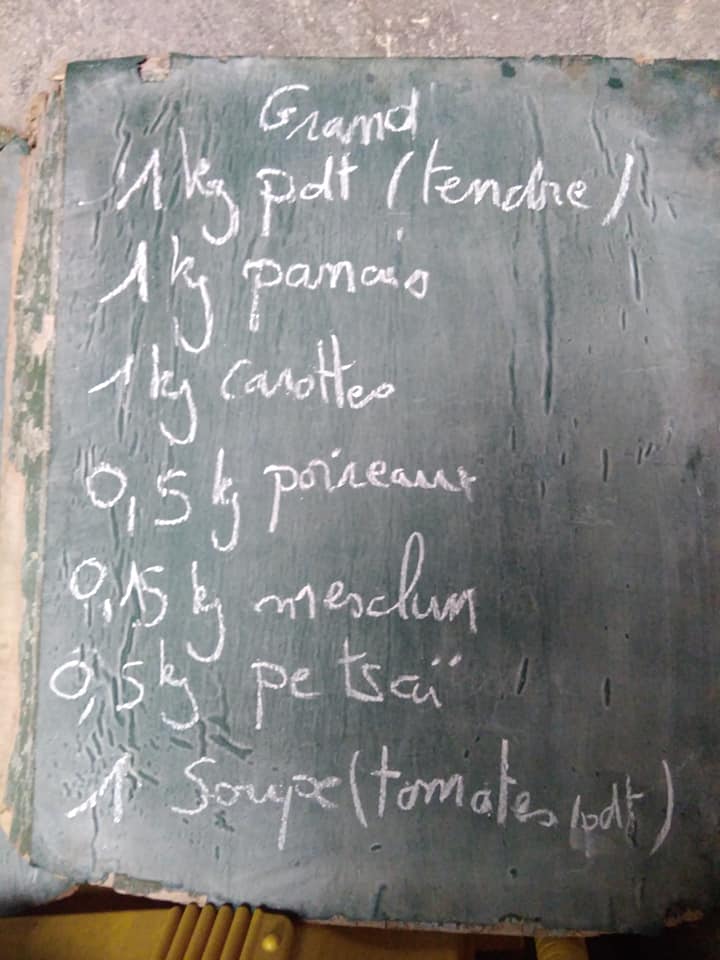 Grand
1 kg pdt (tendre)
1 kg panais
1 kg carottes
0,5 kg poireaux
0,15 kg mesclun
0,5 kg pe tsaï
1 Soupe (tomates, pdt)